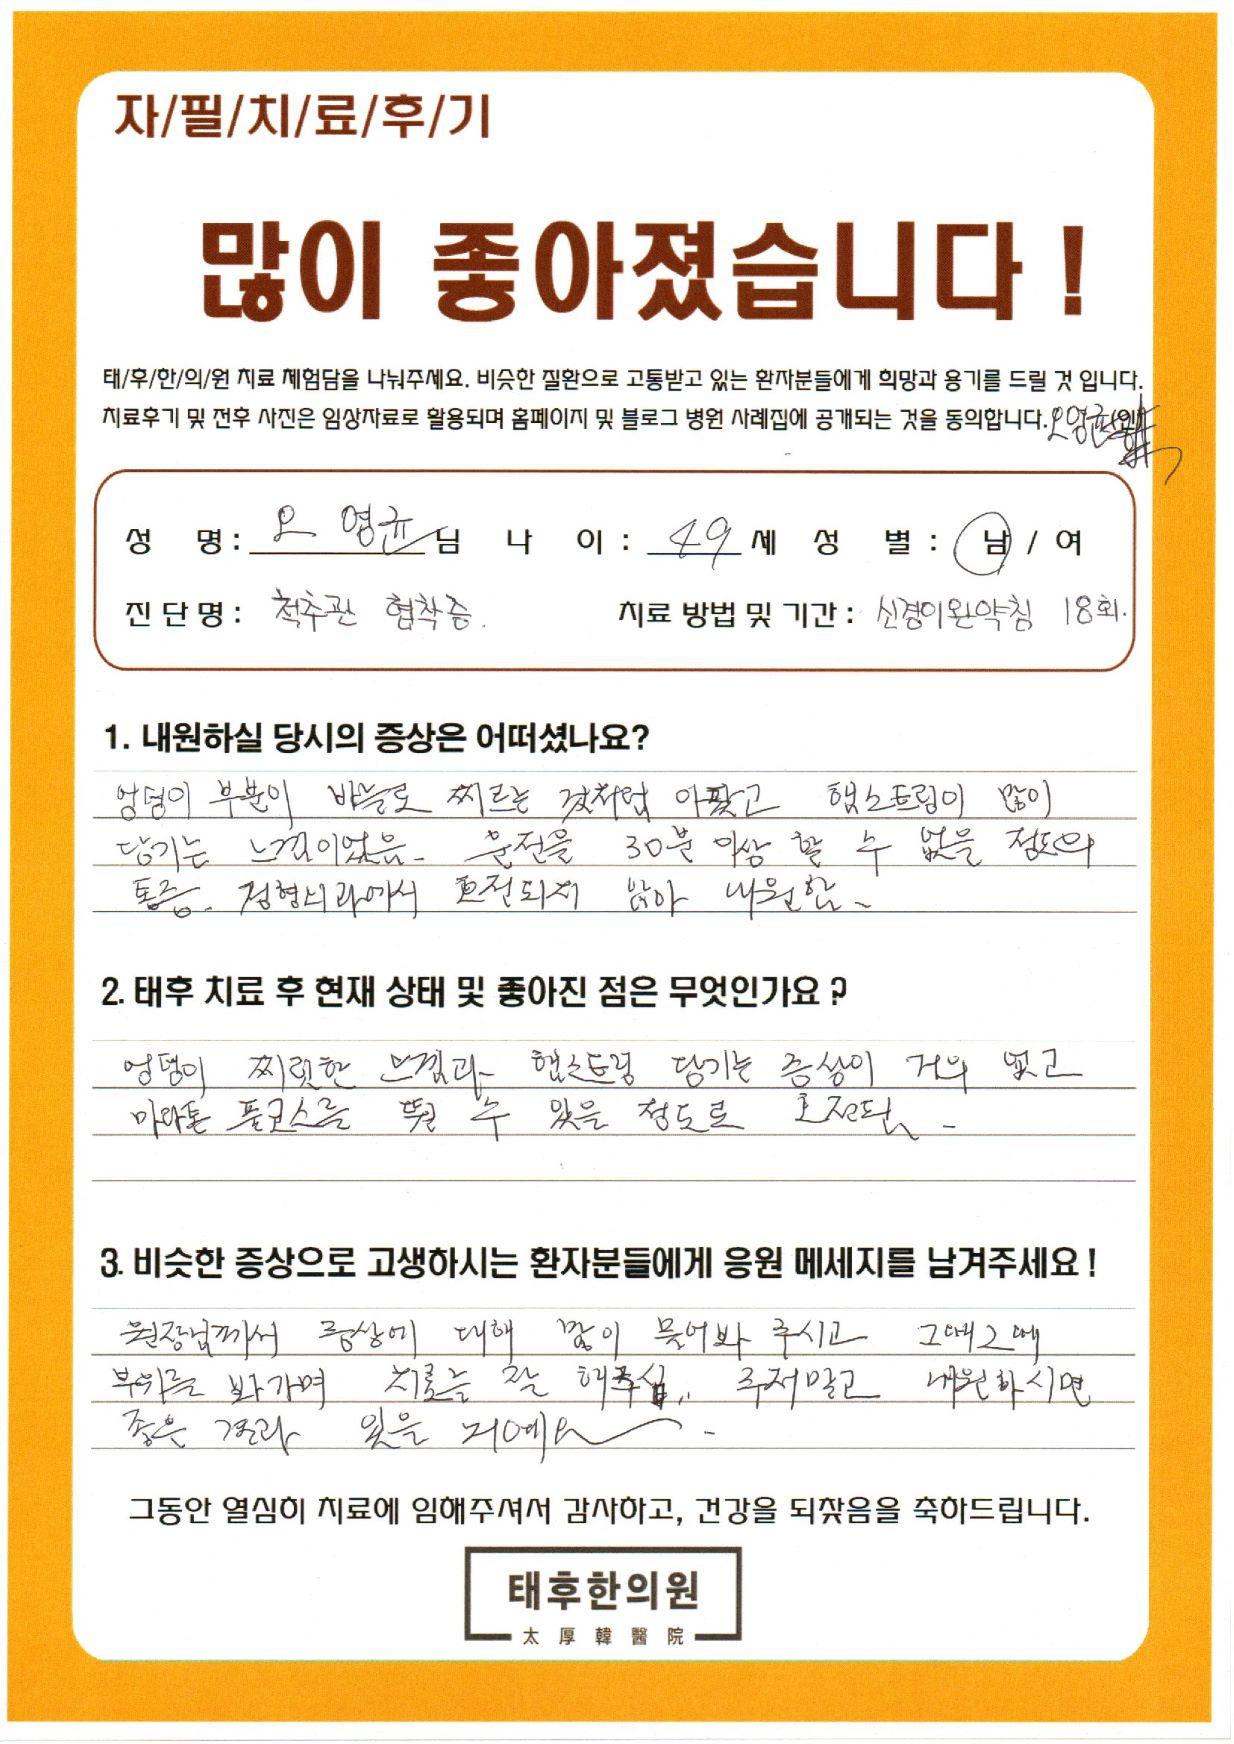 자/필/치/료/후/기
많이 좋아졌습니다!
태/후/한/의/원 치료 체험담을 나눠주세요. 비슷한 질환으로 고통받고 있는 환자분들에게 희망과 용기를 드릴 것 입니다.
치료후기 및 전후 사진은 임상자료로 활용되며 홈페이지 및 블로그 병원 사례집에 공개되는 것을 동의합니다. 오영균
성 명: 오영균 님 나 이: 49 세 성 별: 남 / 여
진단명: 척추관 협착증. 치료 방법 및 기간: 신경이완약침 18회.
1. 내원하실 당시의 증상은 어떠셨나요?
엉덩이 부분이 바늘로 찌르는 것처럼 아팠고 햄스트링이 많이
당기는 느낌이었음. 운전을 30분 이상 할 수 없을 정도의
통증. 정형외과에서 호전되지 않아 내원함.
2. 태후 치료 후 현재 상태 및 좋아진 점은 무엇인가요?
엉덩이 찌릿한 느낌과 햄스트링 당기는 증상이 거의 없고
마라톤 풀코스를 뛸 수 있을 정도로 호전됨.
3. 비슷한 증상으로 고생하시는 환자분들에게 응원 메세지를 남겨주세요!
원장님께서 증상에 대해 많이 물어봐 주시고 그때그때
부위를 봐가며 치료를 잘 해주심. 주저말고 내원하시면
좋은 결과 있을 거예요.
그동안 열심히 치료에 임해주셔서 감사하고, 건강을 되찾음을 축하드립니다.
태후한의원
太厚韓醫院